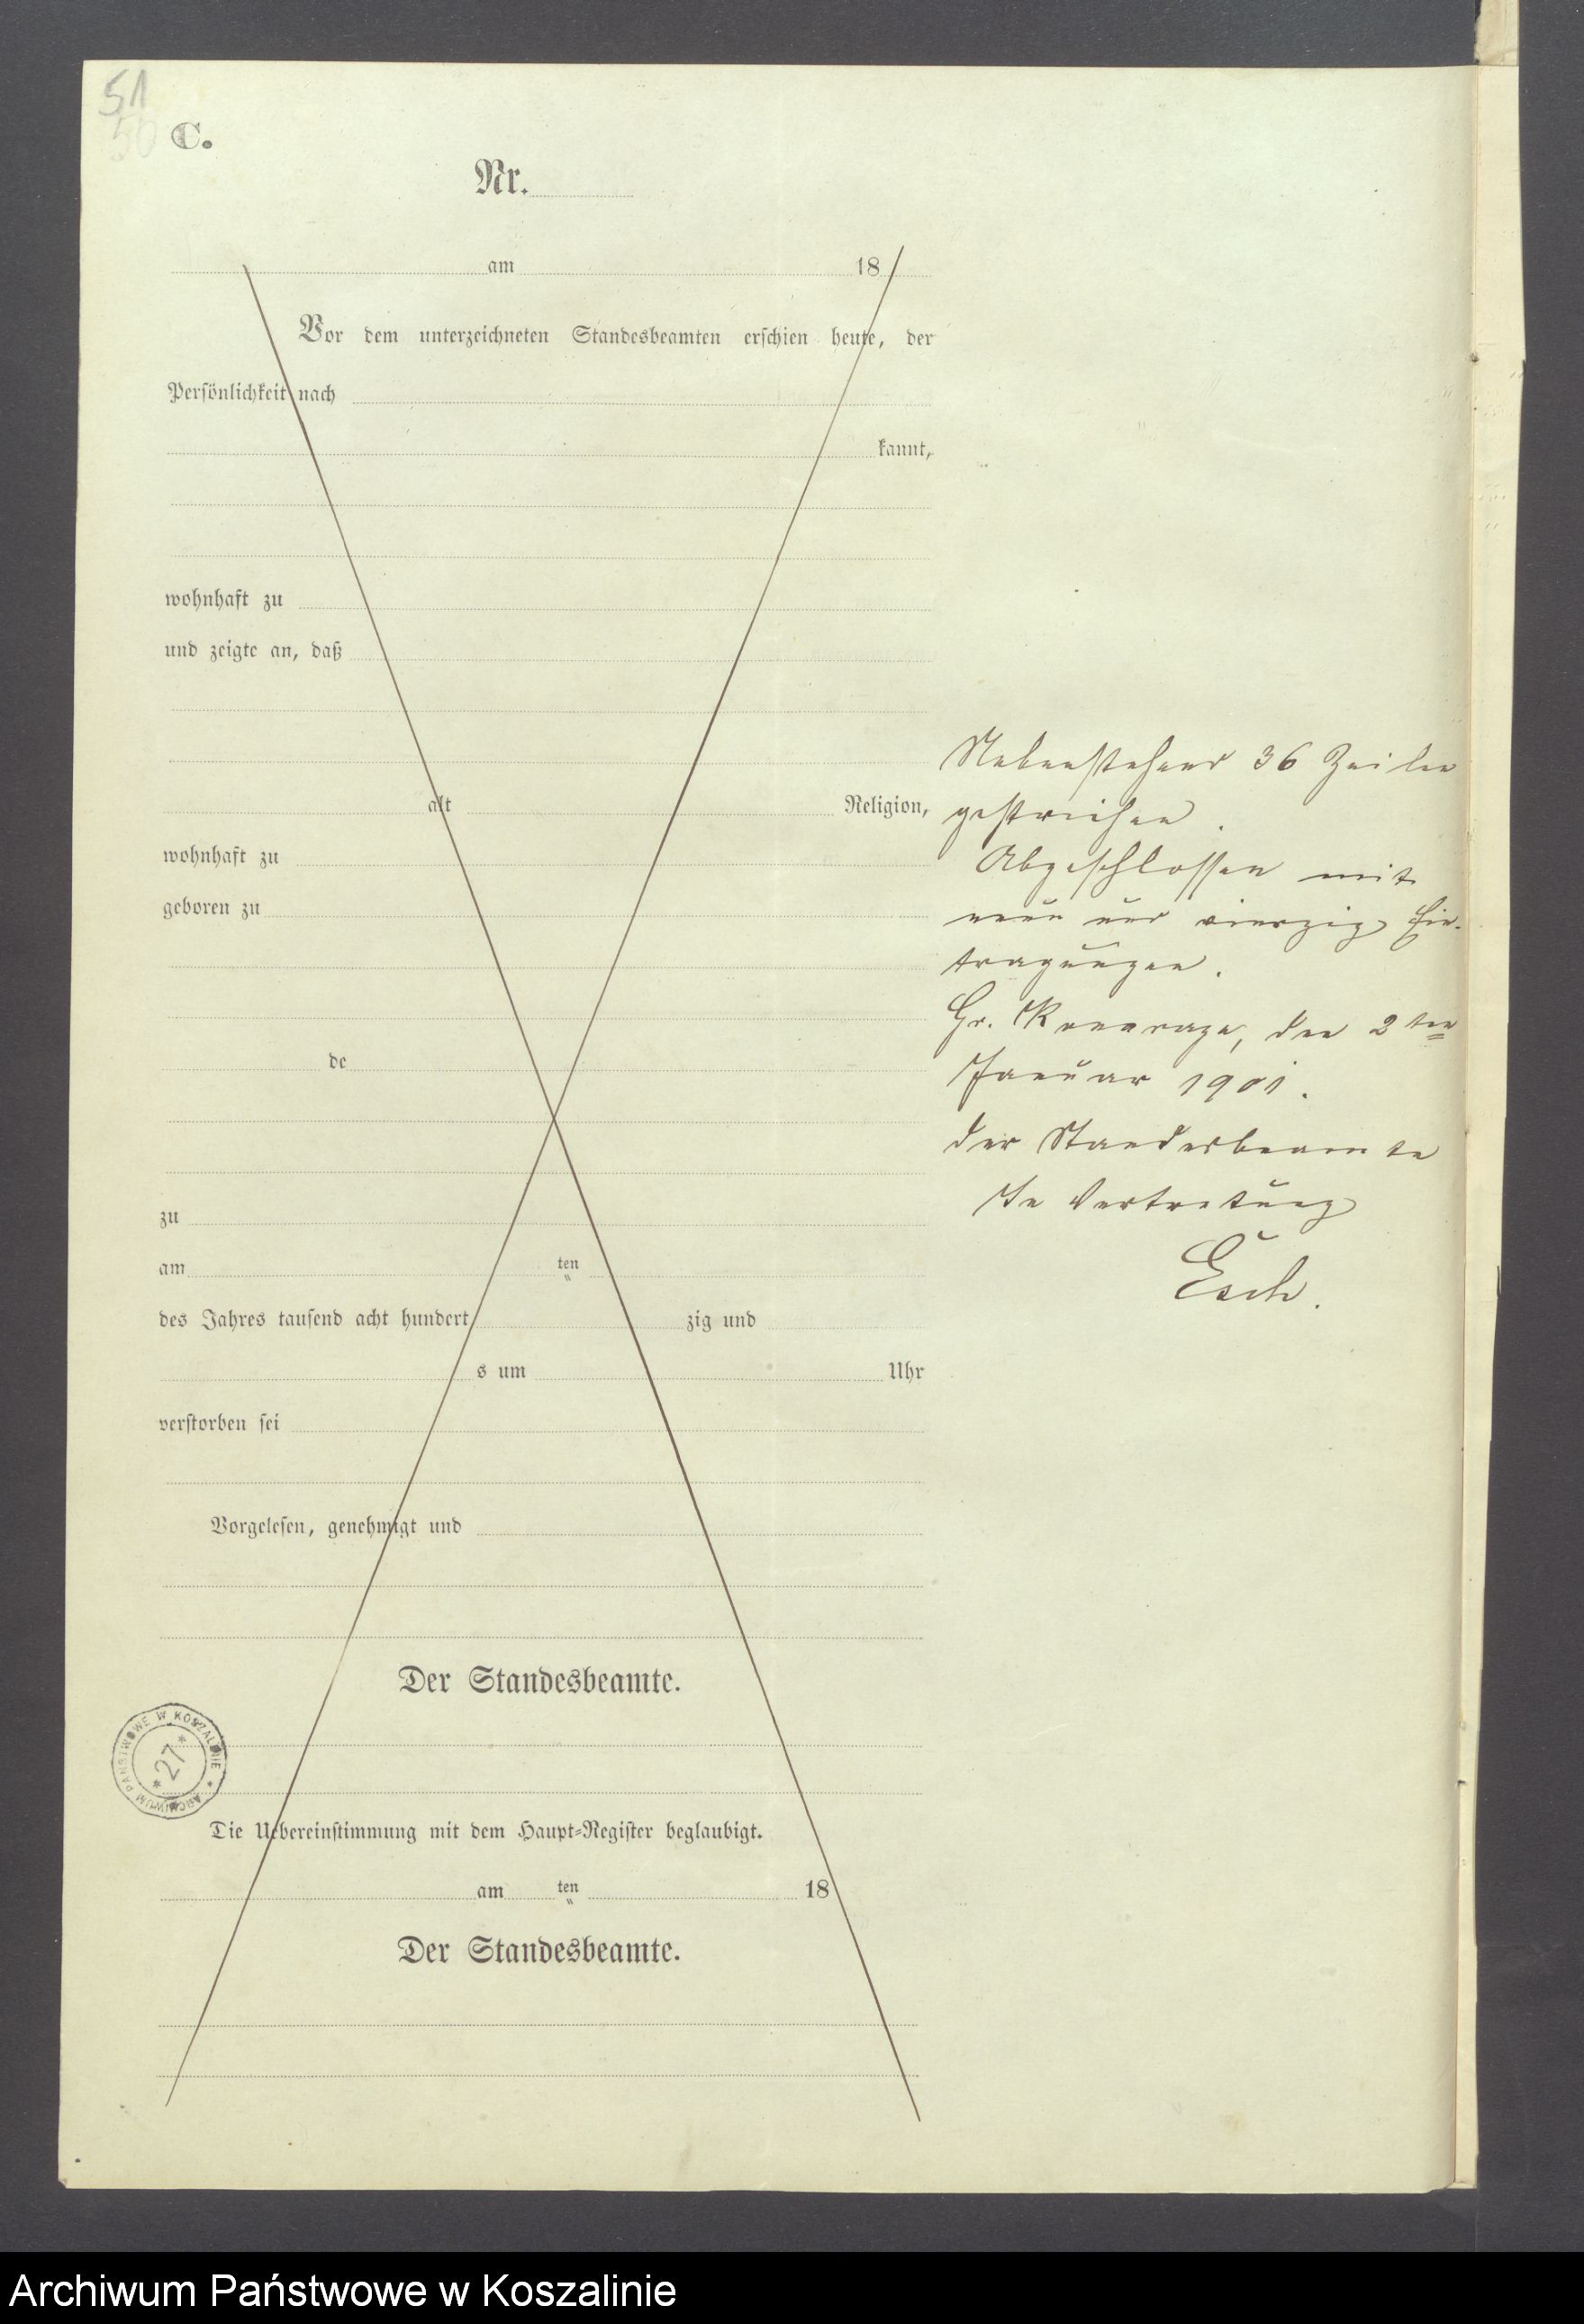 51
50
C.
Nr.
am 18
Vor dem unterzeichneten Standesbeamten erschien heute, der
Persönlichkeit nach
kannt,
wohnhaft zu
und zeigte an, daß
alt Religion,
wohnhaft zu
geboren zu
de
zu
am ten
des Jahres tausend acht hundert zig und
s um Uhr
verstorben sei
Vorgelesen, genehmigt und
Der Standesbeamte.
Die Uebereinstimmung mit dem Haupt-Register beglaubigt.
am ten 18
Der Standesbeamte.
Nebenstehend 36 Zeilen
gestrichen.
Abgeschlossen mit
neun und vierzig Ein-
tragungen.
Gr. den 2ten
Januar 1901.
Der Standesbeamte
In Vertretung
Esch.
ARCHIWUM PAŃSTWOWE W KOSZALINIE
*27*
Archiwum Państwowe w Koszalinie